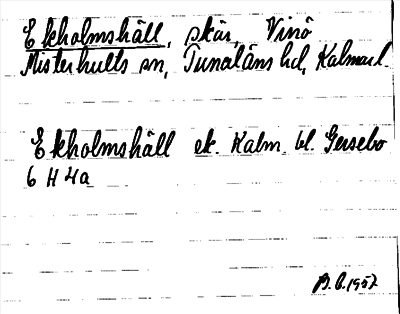 Ekholmshäll, skär, Vinö
Misterhults sn, Tunaläns hd, Kalmar l.
Ekholmshäll ek. Kalm. bl. Gersebo
6 H 4a
B.B. 1957